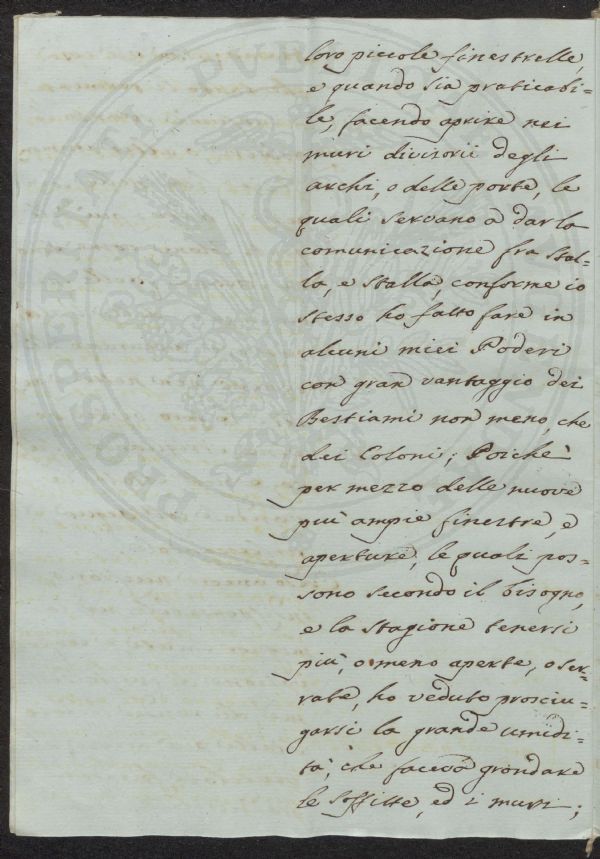 loro piccole finestrelle,
e quando sia praticabi=
le, facendo aprire nei
muri divisorii degli
archi, o delle porte, le
quali servano a dar la
comunicazione fra stal=
la, e stalla, conforme io
stesso ho fatto fare in
alcuni miei Poderi
con gran vantaggio dei
Bestiami non meno, che
dei Coloni; Poichè
per mezzo delle nuove
più ampie finestre, e
aperture, le quali pos=
sono secondo il bisogno,
e la stagione tenersi
più, o meno aperte, o ser=
rate, ho veduto prosciu=
garsi la grande umidi=
tà, che faceva grondare
le soffitte, ed i muri;
PROSPERITATI PUBLICAE